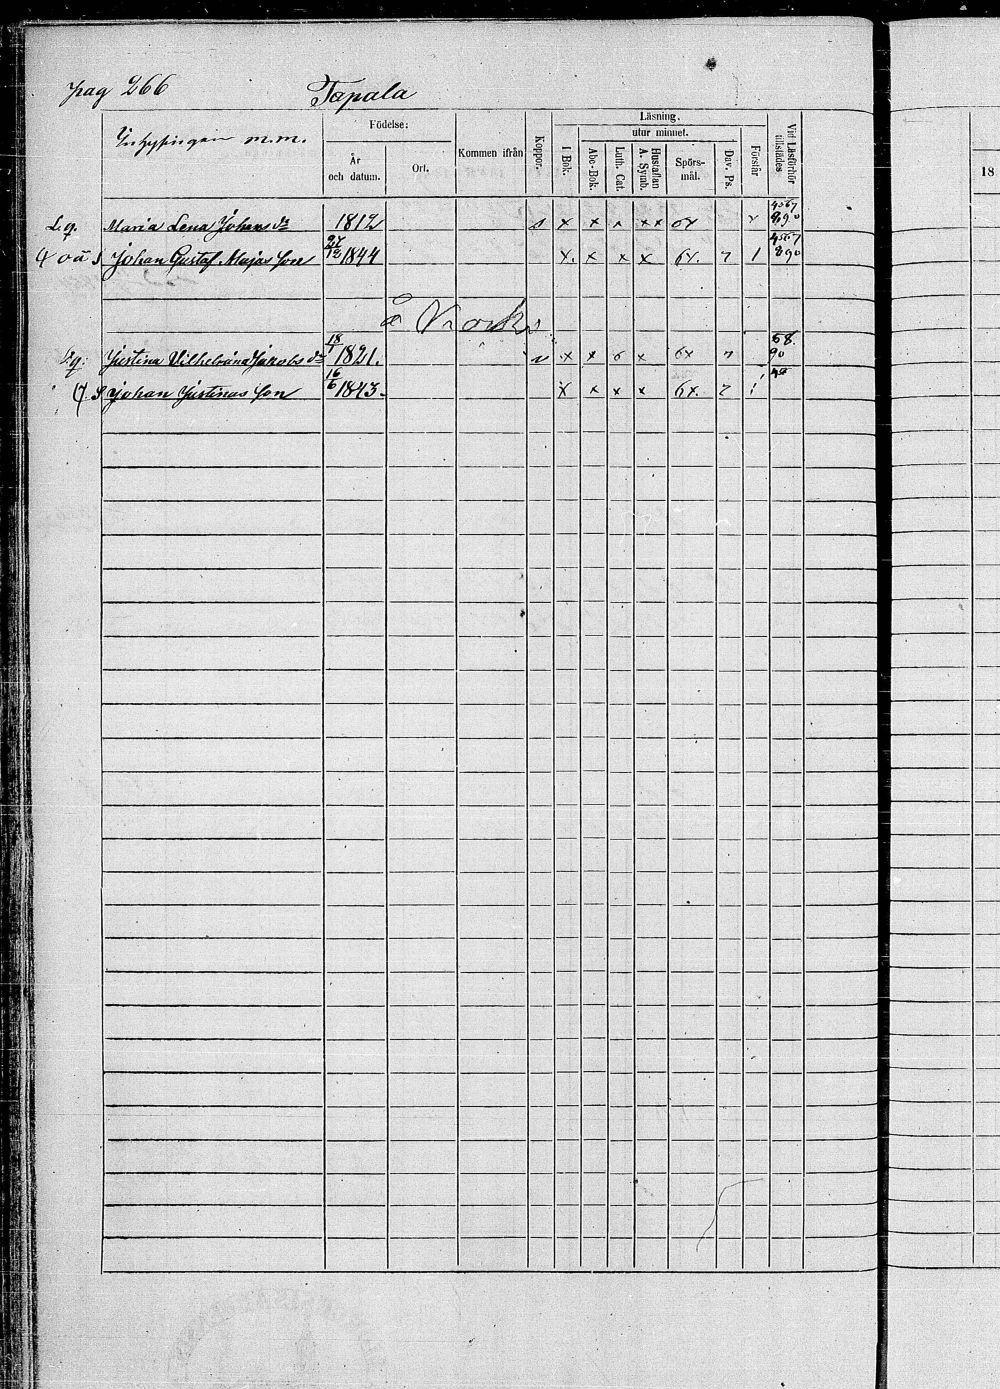 pag 266 Tapala
Inhysingar m.m. Födelse: År och datum. Ort. Kommen ifrån Koppor. Läsning. I Bok. utur minnet. Abc-Bok. Luth. Cat. Hustaflan A. Symb. Spörsmål. Dav. Ps. Förstår Vid Läsförhör tillstädes 18
Maria Lena Johans dr 1812 x x x x x 6x
Johan Gustaf Majas son 27/12 1844 x. x x x 6x. 7 1
å
Justina Vilhelmina Jakobs dr 18/1 1821. x x 6 x 6x 7 68. 90
Johan Justinas son 16/6 1843. x x x x 6x. 7 1